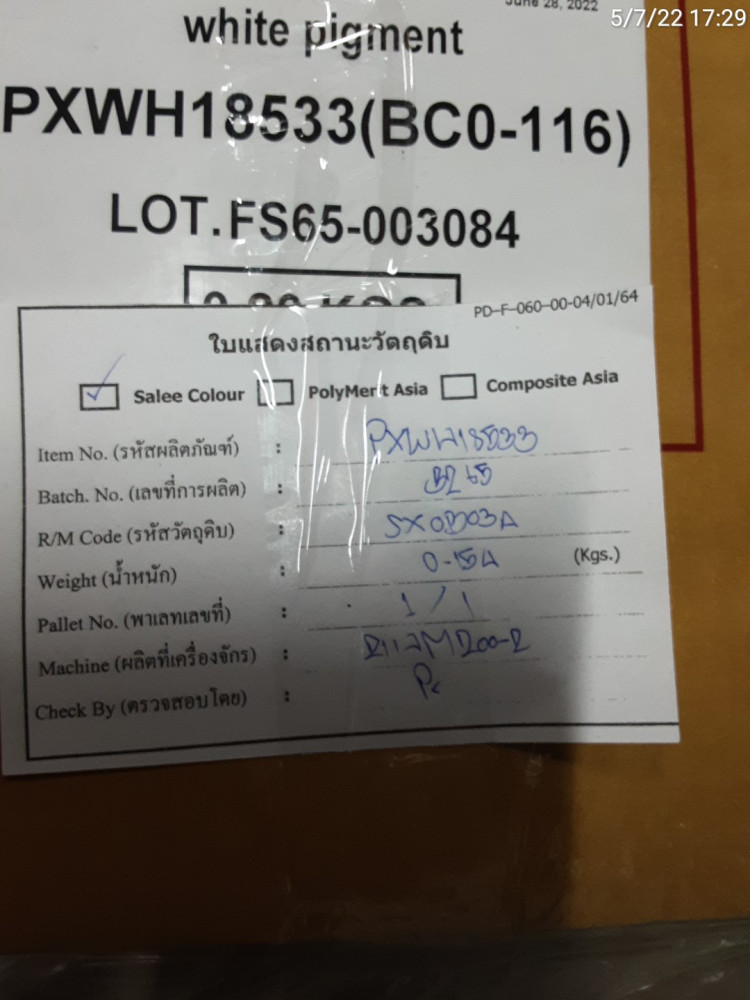 June 28, 2022
5/7/22 17:29
white pigment
PXWH18533(BC0-116)
LOT.FS65-003084
PD-F-060-00-04/01/64
ใบแสดงสถานะวัตถุดิบ
Salee Colour PolyMerit Asia Composite Asia
Item No. (รหัสผลิตภัณฑ์) : PXWH18533
Batch. No. (เลขที่การผลิต) :
R/M Code (รหัสวัตถุดิบ) : SX0B03A
Weight (น้ำหนัก) : (Kgs.)
Pallet No. (พาเลทเลขที่) : 1/1
Machine (ผลิตที่เครื่องจักร) :
Check By (ตรวจสอบโดย) :